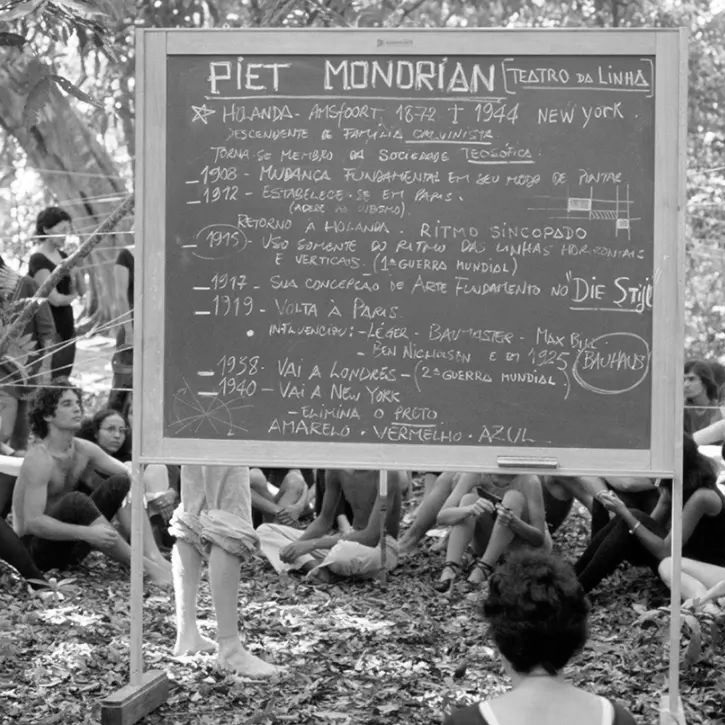 PIET MONDRIAN [TEATRO DA LINHA]
HOLANDA - AMSFOORT 1872 † 1944 NEW YORK.
DESCENDENTE DE FAMÍLIA CALVINISTA.
TORNA-SE MEMBRO DA SOCIEDADE TEOSÓFICA.
1908 - MUDANCA FUNDAMENTAL EM SEU MODO DE PINTAR
1912 - ESTABELECE-SE EM PARIS.
(ADERE AO CUBISMO).
RETORNO A HOLANDA. RITMO SINCOPADO
1915 - USO SOMENTE DO RITMO DAS LINHAS HORIZONTAIS
E VERTICAIS. (1ª GUERRA MUNDIAL)
1917 - SUA CONCEPCAO DE ARTE FUNDAMENTO NO "DIE STIJL"
1919 - VOLTA À PARIS.
• INFLUENCIOU: - LÉGER - BAUMASTER - MAX BILL
- BEN NICHOLSON E EM 1925 (BAUHAUS)
1938 - VAI A LONDRES - (2ª GUERRA MUNDIAL)
1940 - VAI A NEW YORK
- ELIMINA O PRETO
AMARELO - VERMELHO - AZUL